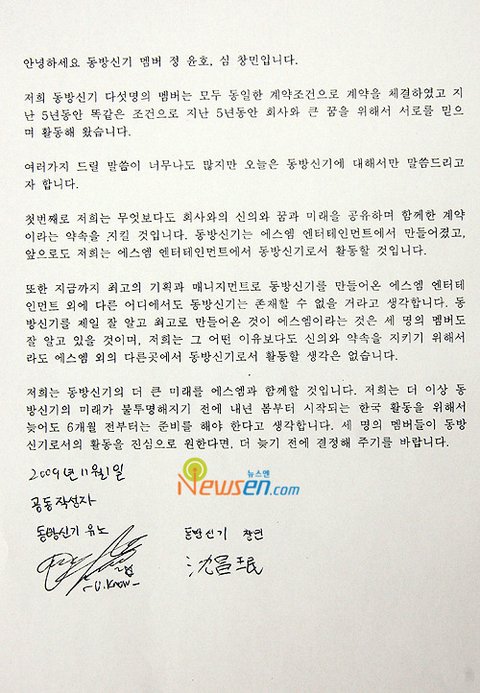 안녕하세요 동방신기 멤버 정 윤호, 심 창민입니다.
저희 동방신기 다섯명의 멤버는 모두 동일한 계약조건으로 계약을 체결하였고 지
난 5년동안 똑같은 조건으로 지난 5년동안 회사와 큰 꿈을 위해서 서로를 믿으
며 활동해 왔습니다.
여러가지 드릴 말씀이 너무나도 많지만 오늘은 동방신기에 대해서만 말씀드리고
자 합니다.
첫번째로 저희는 무엇보다도 회사와의 신의와 꿈과 미래를 공유하며 함께한 계약
이라는 약속을 지킬 것입니다. 동방신기는 에스엠 엔터테인먼트에서 만들어졌고,
앞으로도 저희는 에스엠 엔터테인먼트에서 동방신기로서 활동할 것입니다.
또한 지금까지 최고의 기획과 매니지먼트로 동방신기를 만들어온 에스엠 엔터테
인먼트 외에 다른 어디에서도 동방신기는 존재할 수 없을 거라고 생각합니다. 동
방신기를 제일 잘 알고 최고로 만들어온 것이 에스엠이라는 것은 세 명의 멤버도
잘 알고 있을 것이며, 저희는 그 어떤 이유보다도 신의와 약속을 지키기 위해서
라도 에스엠 외의 다른곳에서 동방신기로서 활동할 생각은 없습니다.
저희는 동방신기의 더 큰 미래를 에스엠과 함께할 것입니다. 저희는 더 이상 동
방신기의 미래가 불투명해지기 전에 내년 봄부터 시작되는 한국 활동을 위해서
늦어도 6개월 전부터는 준비를 해야 한다고 생각합니다. 세 명의 멤버들이 동방
신기로서의 활동을 진심으로 원한다면, 더 늦기 전에 결정해 주기를 바랍니다.
2009년 11월1일
뉴스엔
Newsen.com
공동작성자
동방신기 유노
동방신기 창민
-U.Know-
沈昌珉